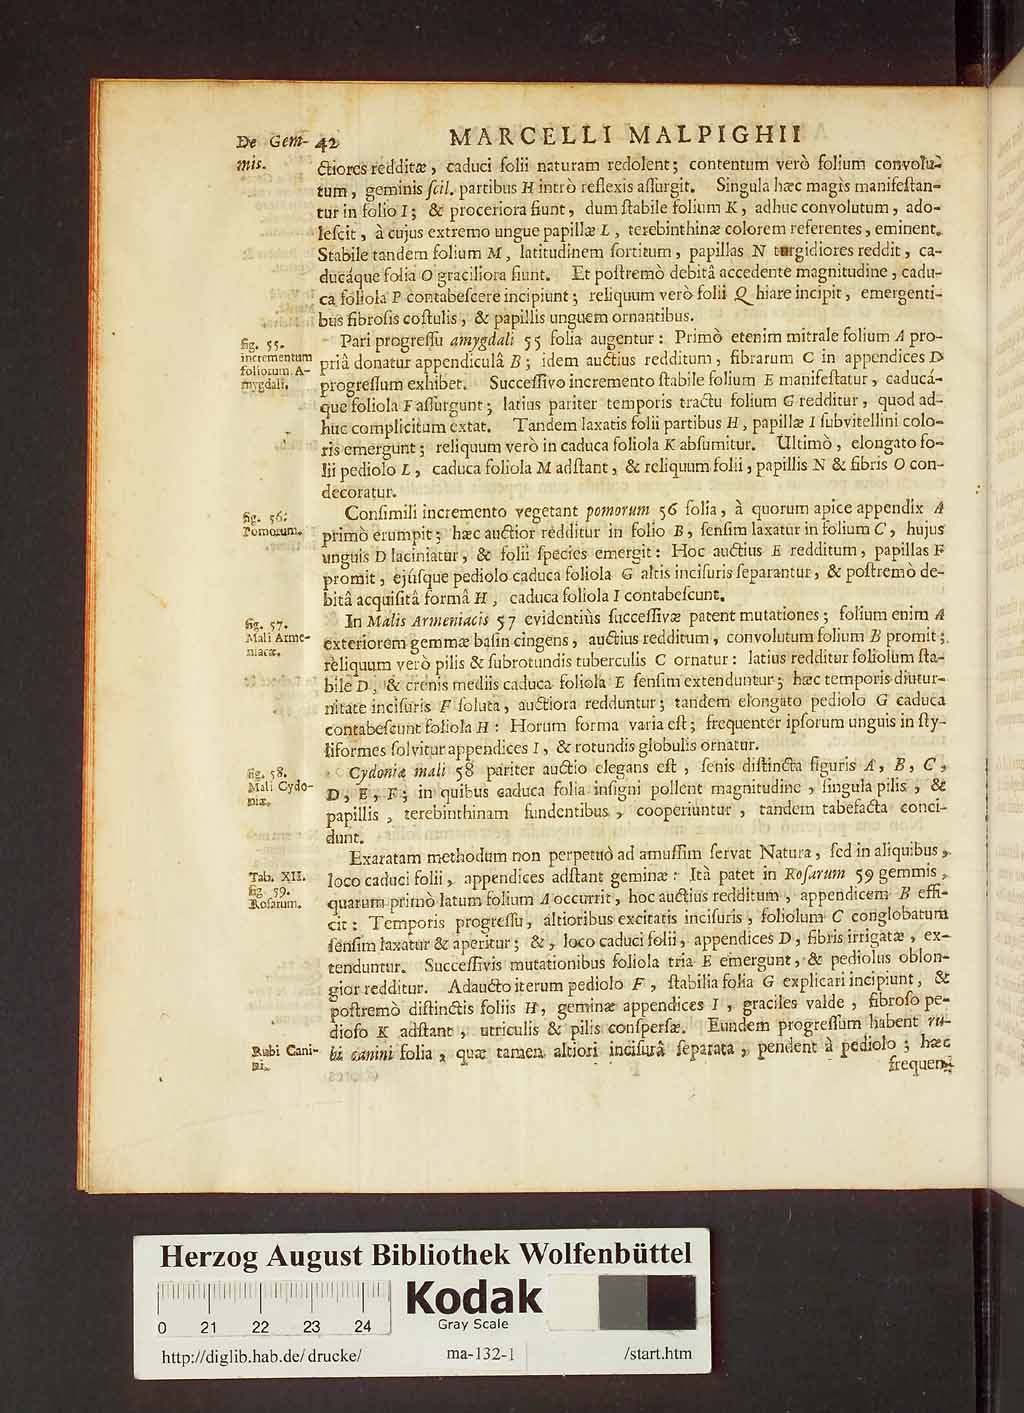 De Gem- 42 MARCELLI MALPIGHII
mis.
ctiores redditæ, caduci folii naturam redolent; contentum verò folium convolu-
tum, geminis scil. partibus H intrò reflexis assurgit. Singula hæc magis manifestan-
tur in folio I; & proceriora fiunt, dum stabile folium K, adhuc convolutum, ado-
lescit, à cujus extremo ungue papillæ L, terebinthinæ colorem referentes, eminent.
Stabile tandem folium M, latitudinem sortitum, papillas N turgidiores reddit, ca-
ducáque folia O graciliora fiunt. Et postremò debitâ accedente magnitudine, cadu-
ca foliola P contabescere incipiunt; reliquum verò folii Q hiare incipit, emergenti-
bus fibrosis costulis, & papillis unguem ornantibus.
fig. 55.
incrementum
foliorum. A-
mygdali.
Pari progressu amygdali 55 folia augentur: Primò etenim mitrale folium A pro-
priâ donatur appendiculâ B; idem auctius redditum, fibrarum C in appendices D
progressum exhibet. Successivo incremento stabile folium E manifestatur, caducá-
que foliola F assurgunt; latius pariter temporis tractu folium G redditur, quod ad-
huc complicitum extat. Tandem laxatis folii partibus H, papillæ I subvitellini colo-
ris emergunt; reliquum verò in caduca foliola K absumitur. Ultimò, elongato fo-
lii pediolo L, caduca foliola M adstant, & reliquum folii, papillis N & fibris O con-
decoratur.
fig. 56.
Pomorum.
Consimili incremento vegetant pomorum 56 folia, à quorum apice appendix A
primò erumpit; hæc auctior redditur in folio B, sensim laxatur in folium C, hujus
unguis D laciniatur, & folii species emergit: Hoc auctius E redditum, papillas F
promit, ejúsque pediolo caduca foliola G altis incisuris separantur, & postremò de-
bitâ acquisitâ formâ H, caduca foliola I contabescunt.
fig. 57.
Mali Arme-
niacæ.
In Malis Armeniacis 57 evidentiùs successivæ patent mutationes; folium enim A
exteriorem gemmæ basin cingens, auctius redditum, convolutum folium B promit;
reliquum verò pilis & subrotundis tuberculis C ornatur: latius redditur foliolum sta-
bile D, & crenis mediis caduca foliola E sensim extenduntur; hæc temporis diutur-
nitate incisuris F soluta, auctiora redduntur; tandem elongato pediolo G caduca
contabescunt foliola H: Horum forma varia est; frequenter ipsorum unguis in sty-
liformes solvitur appendices I, & rotundis globulis ornatur.
fig. 58.
Mali Cydo-
niæ.
Cydoniæ mali 58 pariter auctio elegans est, senis distincta figuris A, B, C,
D, E, F; in quibus caduca folia insigni pollent magnitudine, singula pilis, &
papillis, terebinthinam fundentibus, cooperiuntur, tandem tabefacta conci-
dunt.
Exaratam methodum non perpetuò ad amussim servat Natura, sed in aliquibus,
Tab. XII.
fig. 59.
Rosarum.
loco caduci folii, appendices adstant geminæ: Ità patet in Rosarum 59 gemmis,
quarum primò latum folium A occurrit, hoc auctius redditum, appendicem B effi-
cit: Temporis progressu, altioribus excitatis incisuris, foliolum C conglobatum
sensim laxatur & aperitur; &, loco caduci folii, appendices D, fibris irrigatæ, ex-
tenduntur. Successivis mutationibus foliola tria E emergunt, & pediolus oblon-
gior redditur. Adaucto iterum pediolo F, stabilia folia G explicari incipiunt, &
postremò distinctis foliis H, geminæ appendices I, graciles valde, fibroso pe-
dioso K adstant, utriculis & pilis conspersæ. Eundem progressum habent ru-
Rubi Cani-
ni.
bi canini folia, quæ tamen altiori incisurâ separata, pendent à pediolo; hæc
frequen-
Herzog August Bibliothek Wolfenbüttel
Kodak
Gray Scale
0 21 22 23 24
http://diglib.hab.de/drucke/ ma-132-1 /start.htm